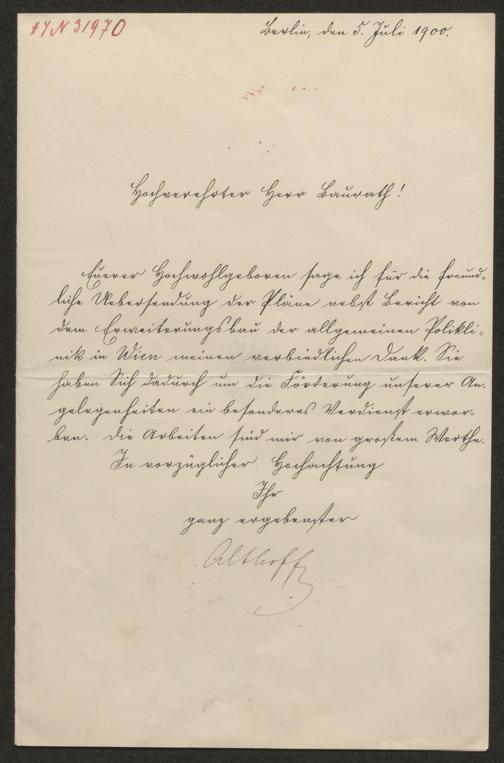 17 N 31970
Berlin, den 5. Juli 1900.
Hochverehrter Herr Baurath!
Euerer Hochwohlgeboren sage ich für die freund-
liche Uebersendung der Pläne nebst Bericht von
dem Erweiterungsbau der allgemeinen Polikli-
nik in Wien meinen verbindlichen Dank. Sie
haben Sich dadurch um die Förderung unserer An-
gelegenheiten ein besonderes Verdienst erwor-
ben. Die Arbeiten sind mir von großem Werthe.
In vorzüglicher Hochachtung
Ihr
ganz ergebenster
Althoff